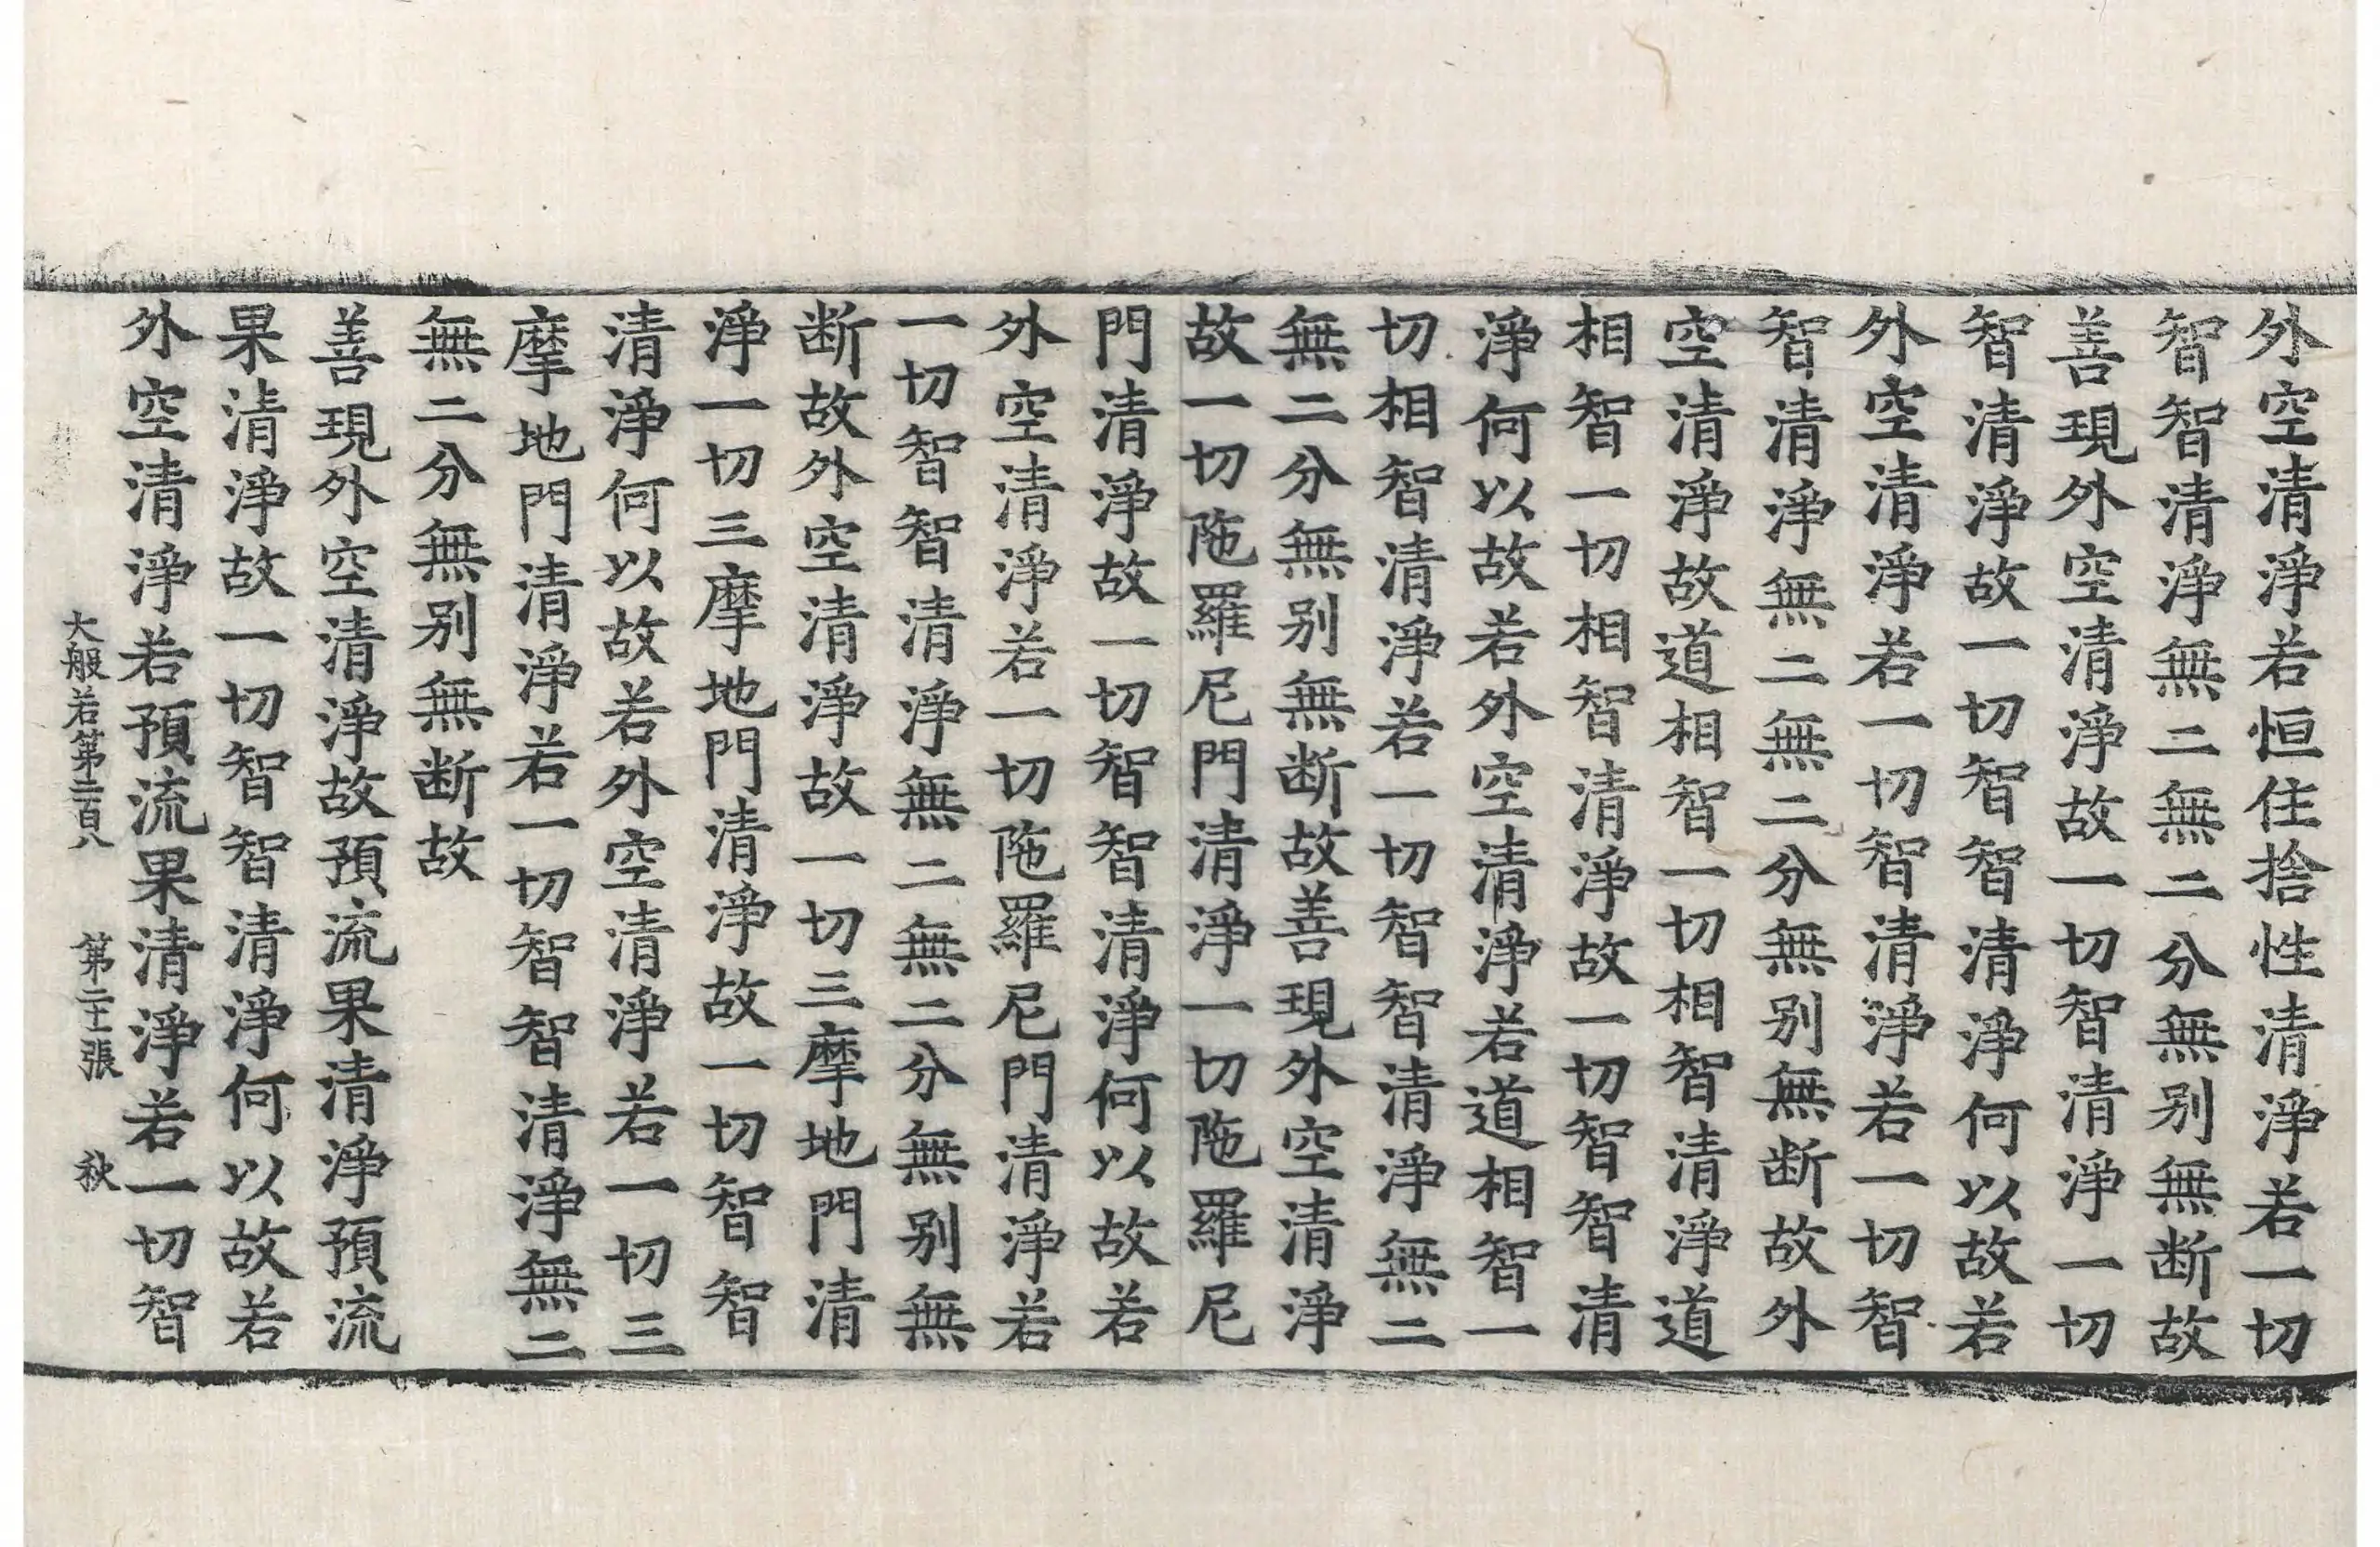 外空清淨若恒住捨性清淨若一切
智智清淨無二無二分無別無断故
善現外空清淨故一切智清淨一切
智清淨故一切智智清淨何以故若
外空清淨若一切智清淨若一切智
智清淨無二無二分無別無断故外
空清淨故道相智一切相智清淨道
相智一切相智清淨故一切智智清
淨何以故若外空清淨若道相智一
切相智清淨若一切智智清淨無二
無二分無別無断故善現外空清淨
故一切陁羅尼門清淨一切陁羅尼
門清淨故一切智智清淨何以故若
外空清淨若一切陁羅尼門清淨若
一切智智清淨無二無二分無別無
断故外空清淨故一切三摩地門清
淨一切三摩地門清淨故一切智智
清淨何以故若外空清淨若一切三
摩地門清淨若一切智智清淨無二
無二分無別無断故
善現外空清淨故預流果清淨預流
果清淨故一切智智清淨何以故若
外空清淨若預流果清淨若一切智
大般若第二百八 第二十一張 秋